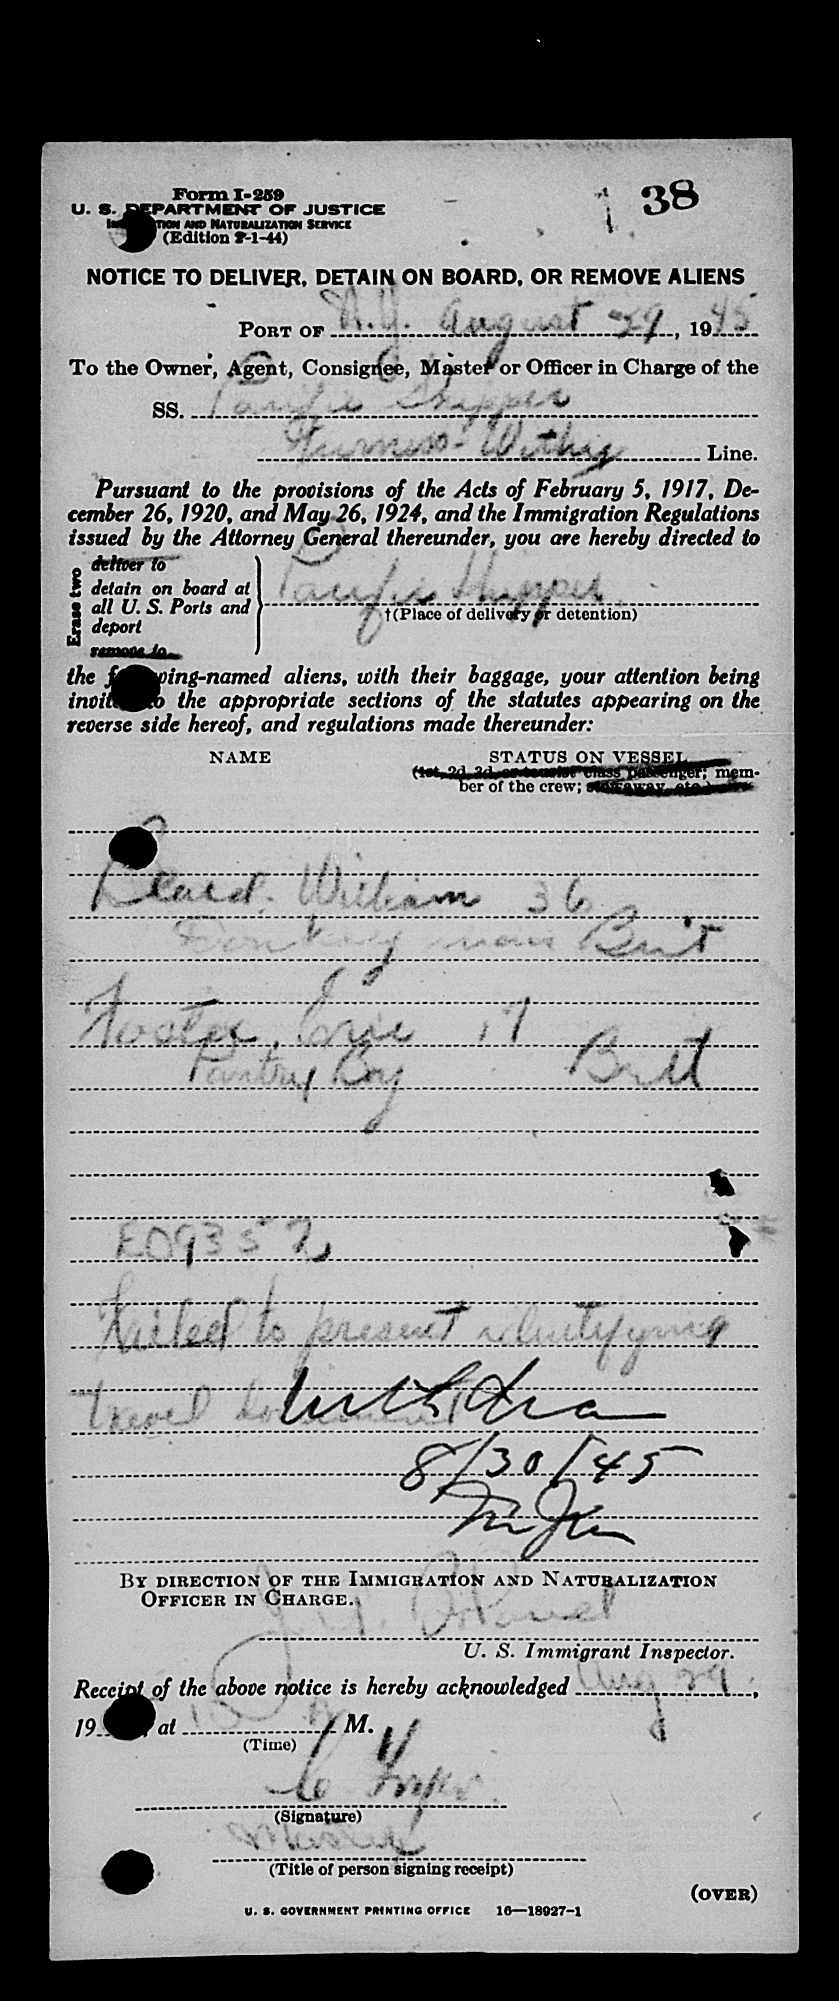 38
Form I-259
U. S. DEPARTMENT OF JUSTICE
IMMIGRATION AND NATURALIZATION SERVICE
(Edition 2-1-44)
NOTICE TO DELIVER, DETAIN ON BOARD, OR REMOVE ALIENS
PORT OF N.Y. August 29, 1945
To the Owner, Agent, Consignee, Master or Officer in Charge of the
SS. Pacific Shipper
Furness-Withy Line.
Pursuant to the provisions of the Acts of February 5, 1917, De-
cember 26, 1920, and May 26, 1924, and the Immigration Regulations
issued by the Attorney General thereunder, you are hereby directed to
Erase two
deliver to
detain on board at
all U. S. Ports and
deport
remove to
Pacific Shipper
†(Place of delivery or detention)
the following-named aliens, with their baggage, your attention being
invited to the appropriate sections of the statutes appearing on the
reverse side hereof, and regulations made thereunder:
NAME STATUS ON VESSEL
(1st, 2d, 3d, or tourist class passenger; mem-
ber of the crew; stowaway, etc.)
William 36
Donkey man Brit
Foster, Eric 17
Pantry Boy Brit
ED9352
Failed to present identifying
travel document
8/30/45
BY DIRECTION OF THE IMMIGRATION AND NATURALIZATION
OFFICER IN CHARGE.
U. S. Immigrant Inspector.
Receipt of the above notice is hereby acknowledged Aug 29,
19 , at 10 A M.
(Time)
(Signature)
Master
(Title of person signing receipt)
(OVER)
U. S. GOVERNMENT PRINTING OFFICE 16—18927-1